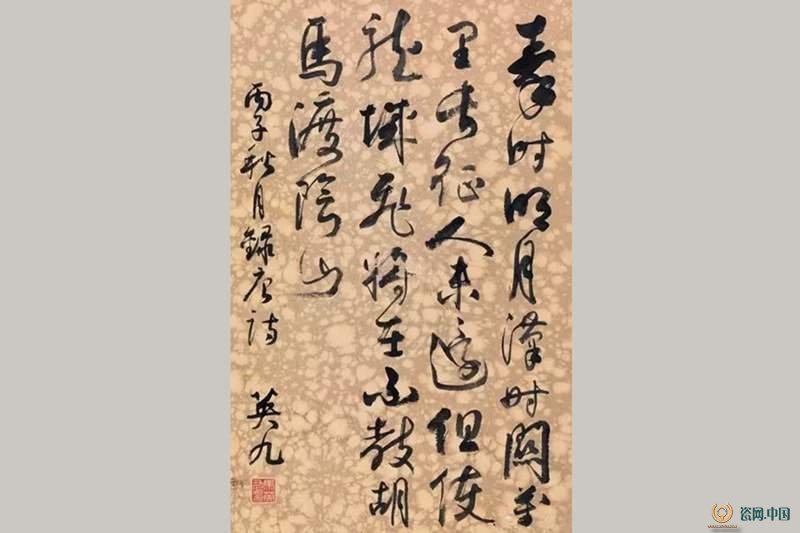 秦時明月漢時關萬
里長征人未還但使
龍城飛將在不教胡
馬渡陰山
丙子秋月錄唐詩 英九
瓷网.中国